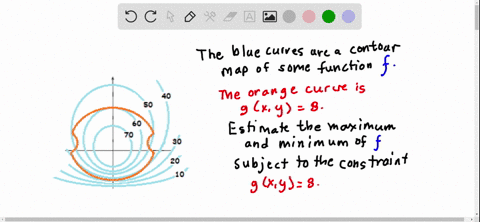 The blue curves are a contour
map of some function f.
The orange curve is
g(x,y) = 8.
Estimate the maximum
and minimum of f
subject to the constraint
g(x,y) = 8.
40
50
60
70
30
20
10
A